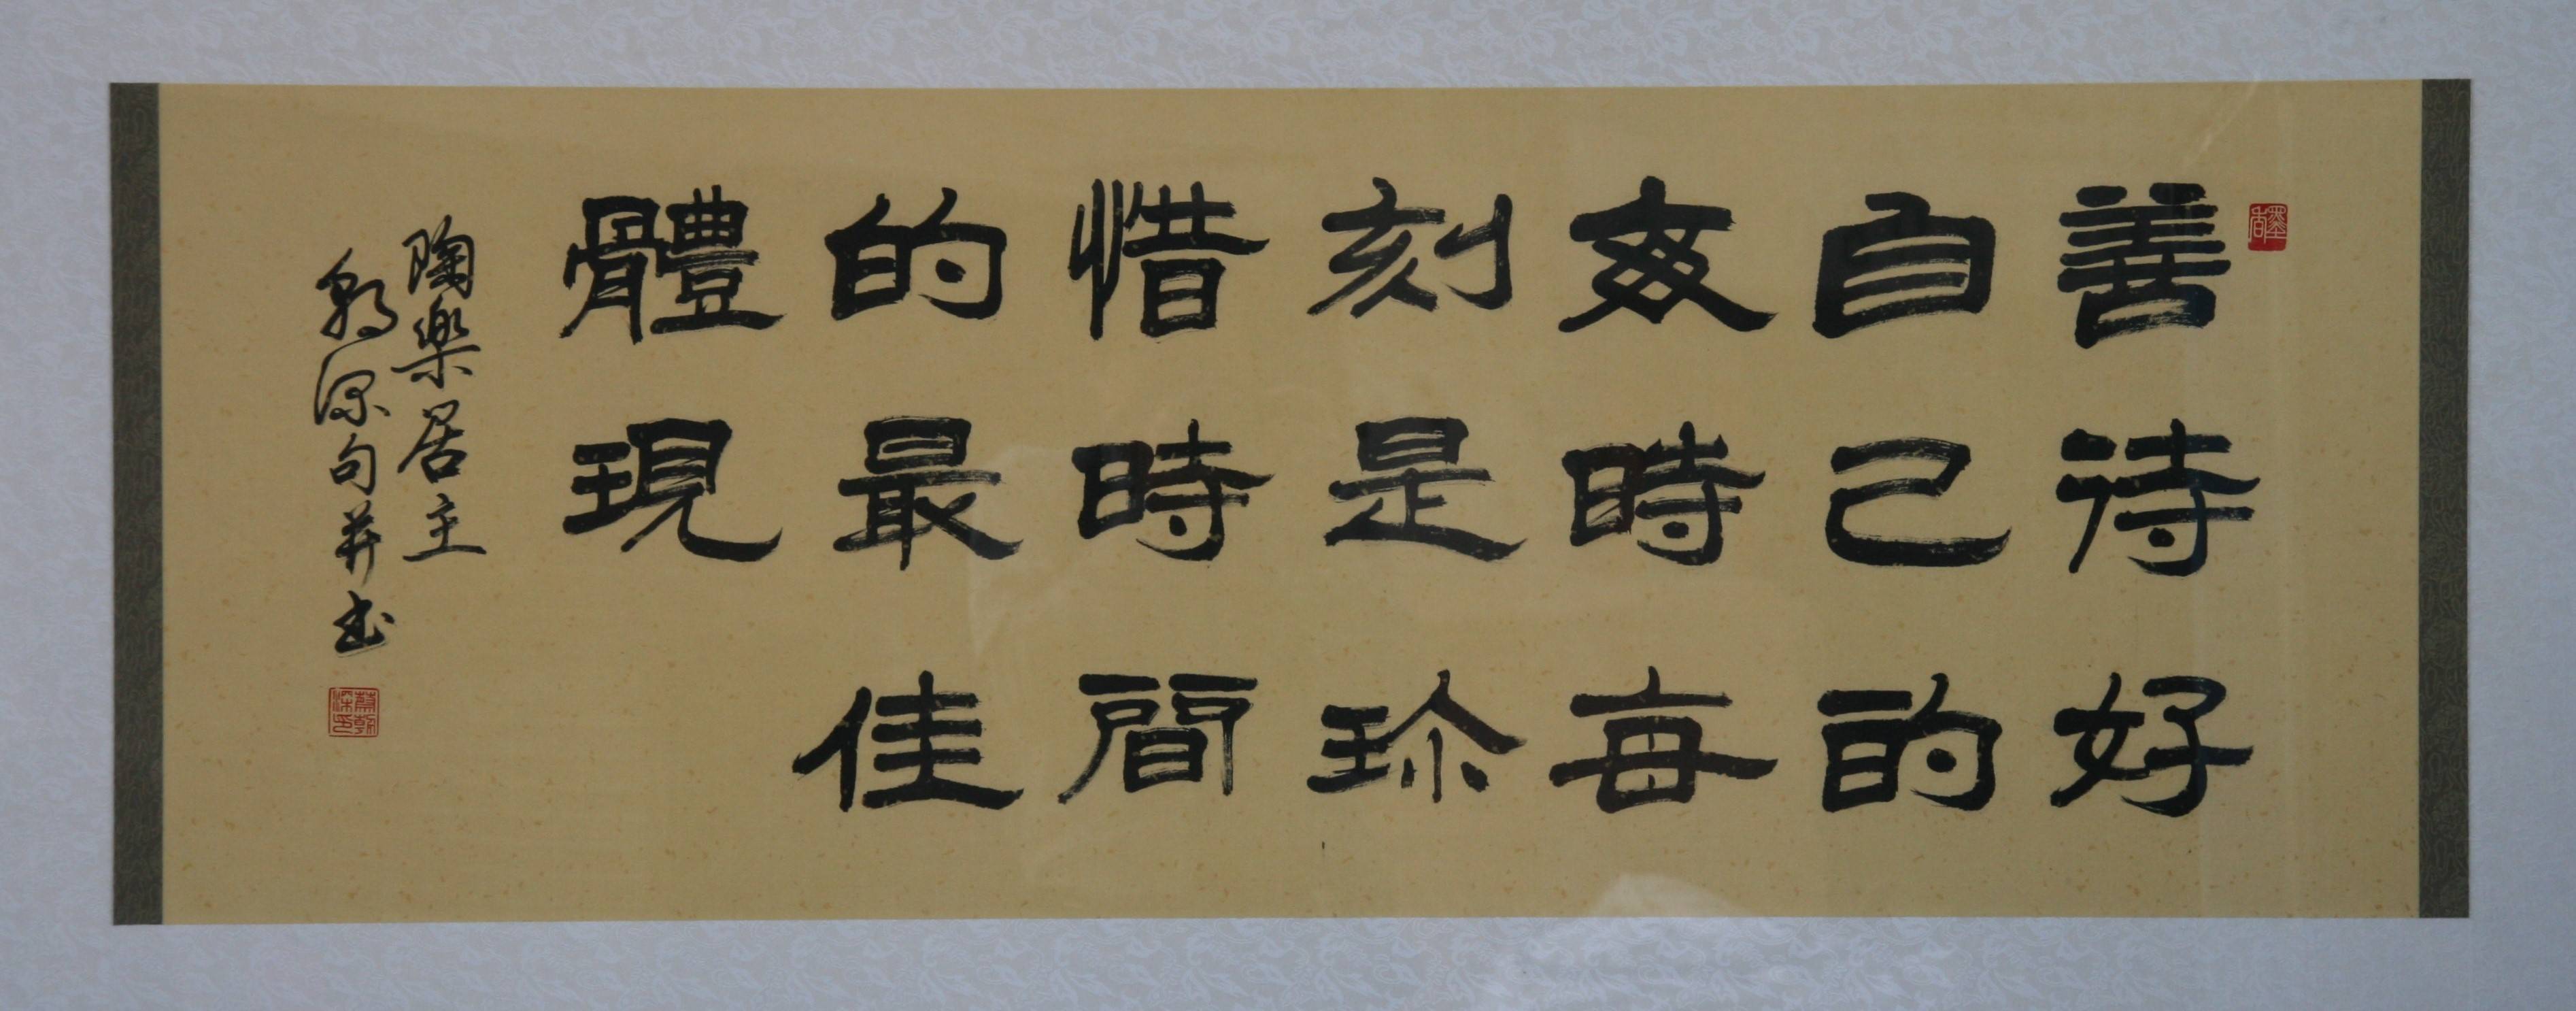 善待好
自己的
每時每
刻是珍
惜時間
的最佳
體現
陶樂居主
朝深句并书
墨香
蔡朝深印